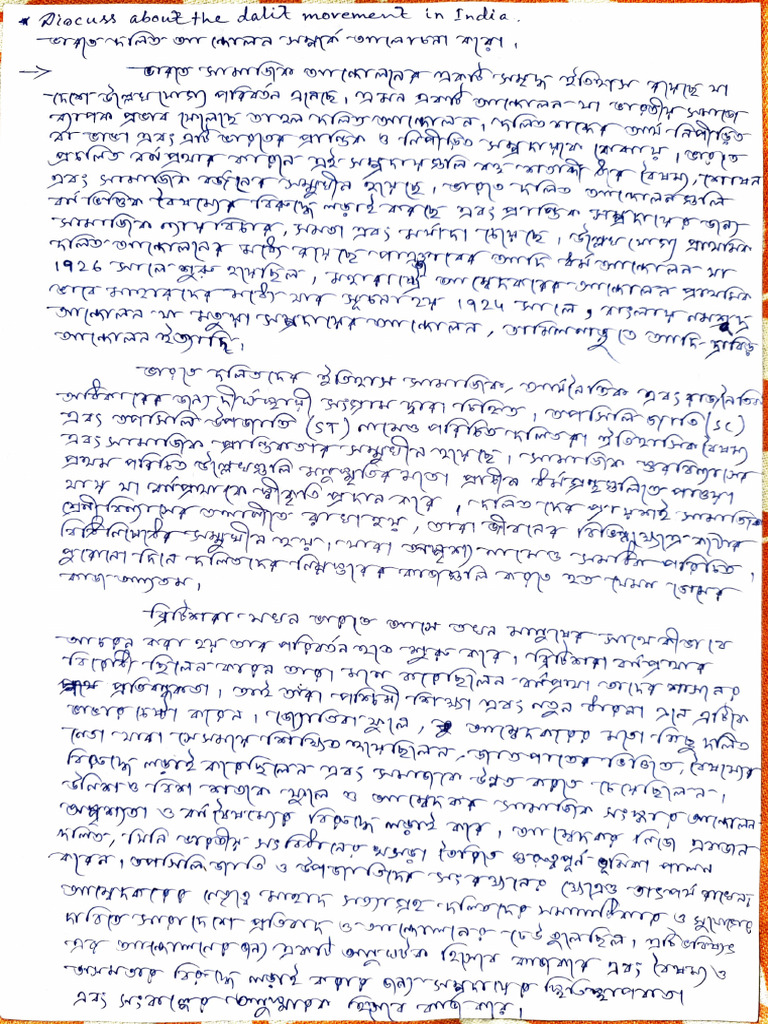 * Discuss about the dalit movement in India.
ভারতে দলিত আন্দোলন সম্পর্কে আলোচনা করো।
→ ভারতে সামাজিক আন্দোলনের একটি সমৃদ্ধ ইতিহাস রয়েছে যা
দেশে উল্লেখযোগ্য পরিবর্তন এনেছে। এমন একটি আন্দোলন যা ভারতীয় সমাজে
ব্যাপক প্রভাব ফেলেছে তাহল দলিত আন্দোলন। দলিত শব্দের অর্থ নিপীড়িত
বা ভাঙা এবং এটি ভারতের প্রান্তিক ও নিপীড়িত সম্প্রদায়কে বোঝায়। ভারতে
প্রচলিত বর্ণপ্রথার কারনে এই সম্প্রদায়গুলি বহু শতাব্দী ধরে বৈষম্য, শোষন
এবং সামাজিক বর্জনের সম্মুখীন হয়েছে। ভারতে দলিত আন্দোলনগুলি
বর্ণভিত্তিক বৈষম্যের বিরুদ্ধে লড়াই করছে এবং প্রান্তিক সম্প্রদায়ের জন্য
সামাজিক ন্যায়বিচার, সমতা এবং মর্যাদা চেয়েছে। উল্লেখযোগ্য প্রাথমিক
দলিত আন্দোলনের মধ্যে রয়েছে পাঞ্জাবের আদি ধর্ম আন্দোলন যা
1926 সালে শুরু হয়েছিল, মহারাষ্ট্রে আম্বেদকরের আন্দোলন প্রাথমিক
ভাবে মাহারদের মধ্যে যার সূচনা হয় 1924 সালে, বাংলায় নমশূদ্র
আন্দোলন যা মতুয়া সম্প্রদায়ের আন্দোলন, তামিলনাড়ুতে আদি দ্রাবিড়
আন্দোলন ইত্যাদি।
ভারতে দলিতদের ইতিহাস সামাজিক, অর্থনৈতিক এবং রাজনৈতিক
অধিকারের জন্য দীর্ঘস্থায়ী সংগ্রাম দ্বারা চিহ্নিত। তপসিলি জাতি (SC)
এবং তপসিলি উপজাতি (ST) নামেও পরিচিত দলিতরা ঐতিহাসিক বৈষম্য
এবং সামাজিক প্রান্তিকতার সম্মুখীন হয়েছে। সামাজিক স্তরবিন্যাসের
প্রথম পরিচিত উল্লেখগুলি মনুস্মৃতির মতো প্রাচীন ধর্মগ্রন্থগুলিতে পাওয়া
যায় যা বর্ণপ্রথাকে স্বীকৃতি প্রদান করে। দলিতদের প্রায়শই সামাজিক
শ্রেণীবিন্যাসের তলানীতে রাখা হয়, তারা জীবনের বিভিন্ন ক্ষেত্রে কঠোর
বিধিনিষেধের সম্মুখীন হয়। যারা অস্পৃশ্য নামেও সমধিক পরিচিত।
পুরোনো দিনে দলিতদের নিম্নস্তরের কাজগুলি করতে হত যেমন ডোমের
কাজ অন্যতম।
ব্রিটিশরা যখন ভারতে আসে তখন মানুষের সাথে কীভাবে
আচরন করা হয় তার পরিবর্তন হতে শুরু করে। ব্রিটিশরা বর্ণপ্রথার
বিরোধী ছিলেন কারন তারা মনে করেছিলেন বর্ণপ্রথা তাদের শাসনের
প্রতিবন্ধকতা। তাই তাঁরা পশ্চিমী শিক্ষা এবং নতুন ধারনা এনে এটিকে
ভাঙার চেষ্টা করেন। জ্যোতিবা ফুলে, আম্বেদকরের মতো কিছু দলিত
নেতা যারা সেসময়ে শিক্ষিত হয়েছিলেন, জাতপাতের ভিত্তিতে, বৈষম্যের
বিরুদ্ধে লড়াই করেছিলেন এবং সমাজকে উন্নত করতে চেয়েছিলেন।
ঊনিশ ও বিশ শতকে ফুলে ও আম্বেদকর সামাজিক সংস্কার আন্দোলন
অস্পৃশ্যতা ও বর্ণবৈষম্যের বিরুদ্ধে লড়াই করে। আম্বেদকর নিজে একজন
দলিত, যিনি ভারতীয় সংবিধানের খসড়া তৈরিতে গুরুত্বপূর্ন ভূমিকা পালন
করেন। তপসিলি জাতি ও উপজাতিদের সংরক্ষনের ক্ষেত্রেও তাৎপর্য রাখেন।
আম্বেদকরের নেতৃত্বে মাহাদ সত্যাগ্রহ দলিতদের সমানাধিকার ও সুযোগের
দাবিতে সারাদেশে প্রতিবাদ ও আন্দোলনের ঢেউ তুলেছিল। এটি ভবিষ্যৎ
এর আন্দোলনের জন্য একটি অনুঘটক হিসেবে কাজ করে এবং বৈষম্য ও
অসমতার বিরুদ্ধে লড়াই করার জন্য সম্প্রদায়ের স্থিতিস্থাপকতা
এবং সংকল্পের অনুস্মারক হিসেবে কাজ করে।